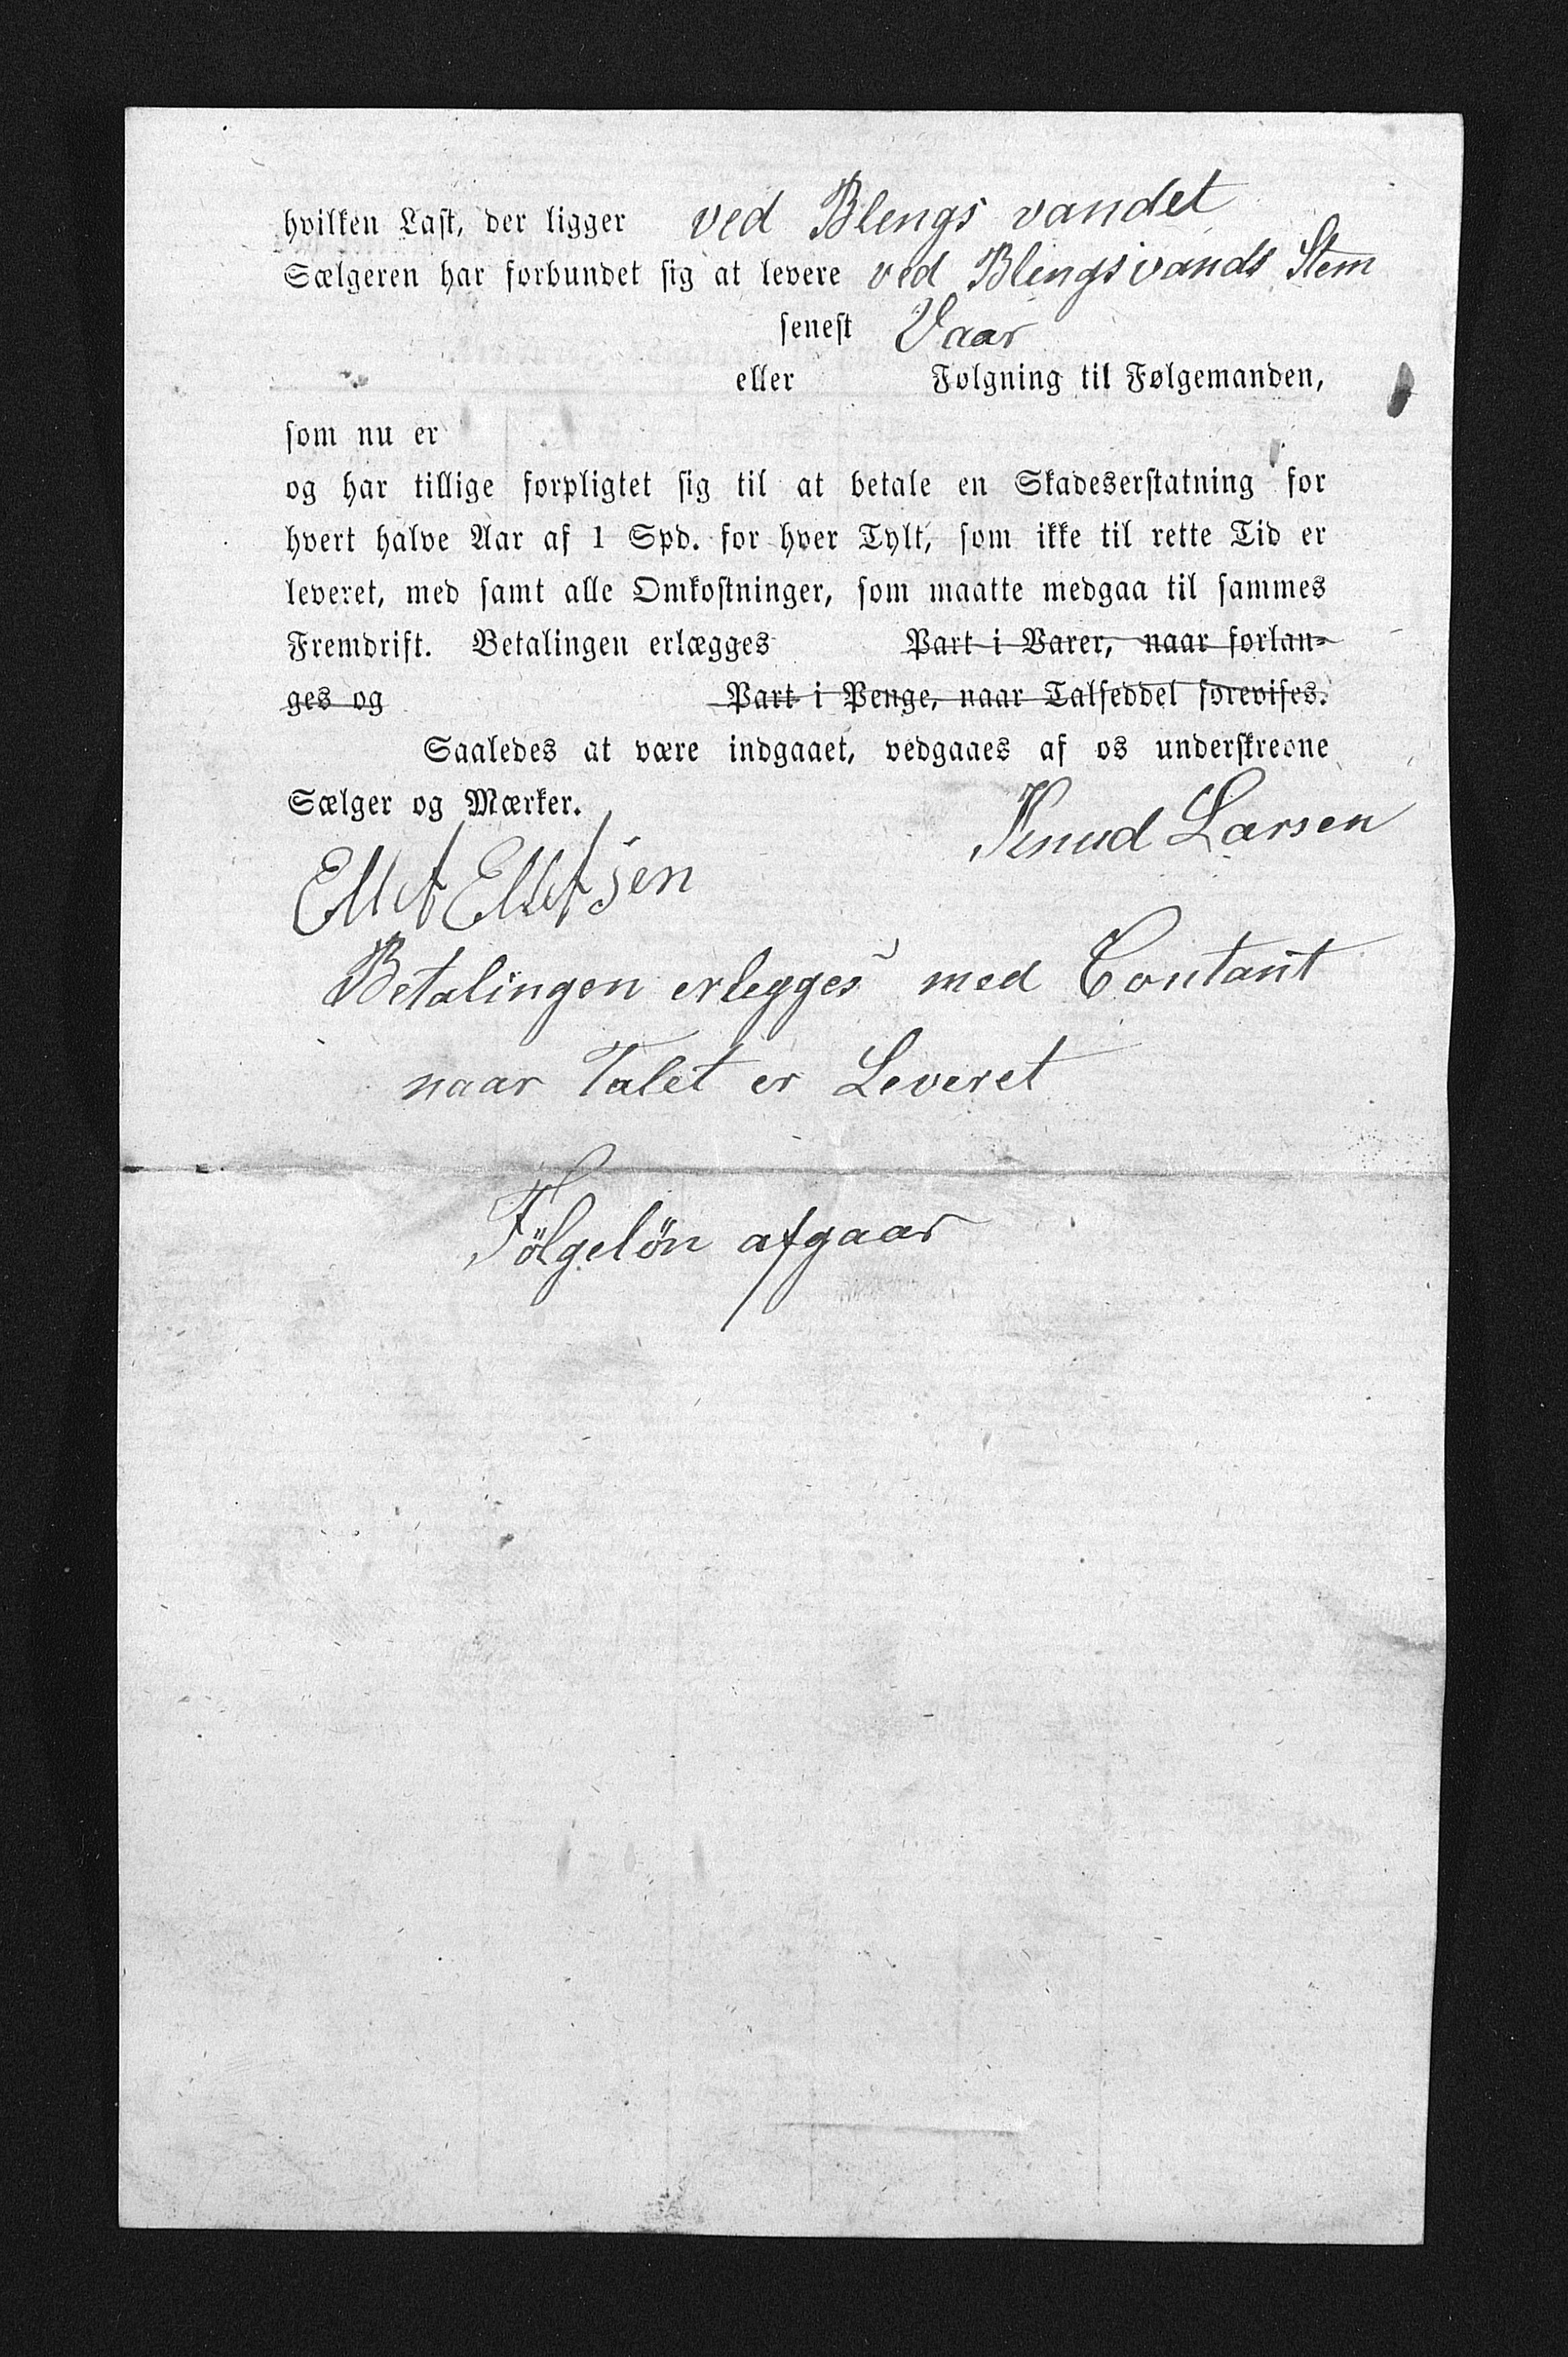 hvilken Last, der ligger ved Blengs vandet
Sælgeren har forbundet sig at levere ved Blengsvands Stem
senest Vaar
eller Folgning til Følgemanden,
som nu er
og har tillige forpligtet sig til at betale en Skadeserstatning for
hvert halve Aar af 1 Spd. for hver Tylt, som ikke til rette Tid er
leveret, med samt alle Omkostninger, som maatte medgaa til sammes
Fremdrift. Betalingen erlægges Part i Varer, naar forlan-
ges og Part i Penge, naar Talseddel forevises.
Saaledes at være indgaaet, vedgaaes af os underskrevne
Sælger og Mærker.
Knud Larsen
Betalingen erlegges med Contant
naar Talet er Leveret
Fölgelön afgaar